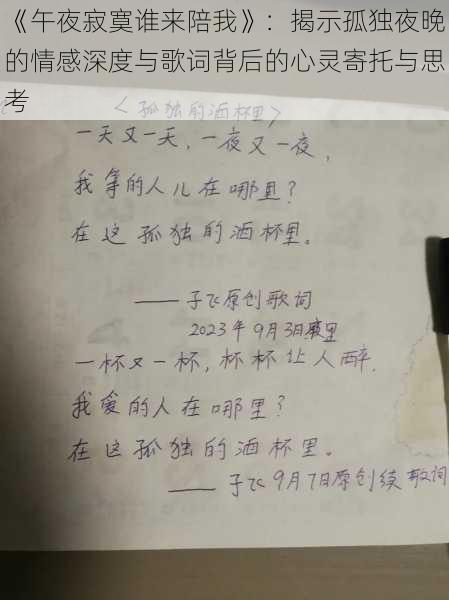 《午夜寂寞谁来陪我》：揭示孤独夜晚
的情感深度与歌词背后的心灵寄托与思
考
<孤独的酒杯里>
一天又一天，一夜又一夜，
我等的人儿在哪里？
在这孤独的酒杯里。
——子飞原创歌词
2023年9月3日夜里
一杯又一杯，杯杯让人醉.
我爱的人在哪里？
在这孤独的酒杯里。
——子飞9月7日原创续歌词